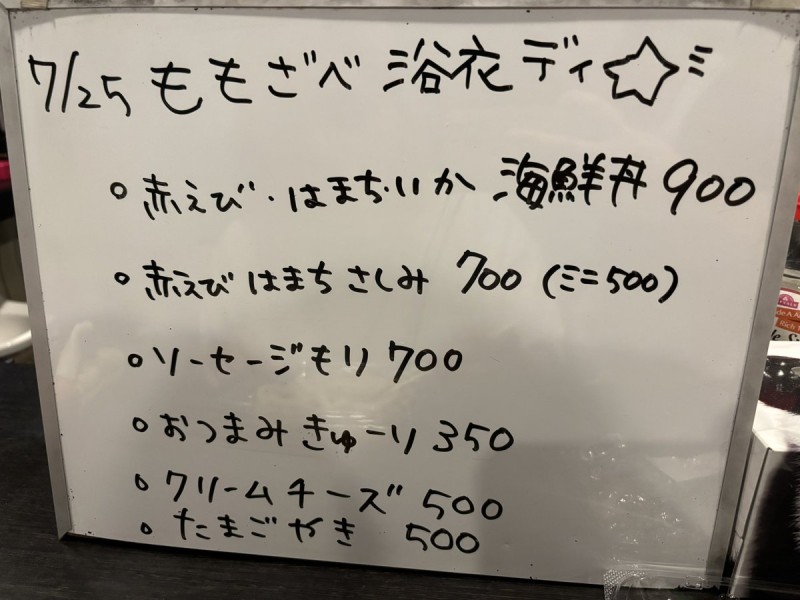 7/25 ももざべ 浴衣ディ☆ミ
○ 赤えび・はまち・いか 海鮮丼 900
○ 赤えび はまち さしみ 700 (ミニ500)
○ ソーセージもり 700
○ おつまみきゅーり 350
○ クリームチーズ 500
○ たまごやき 500